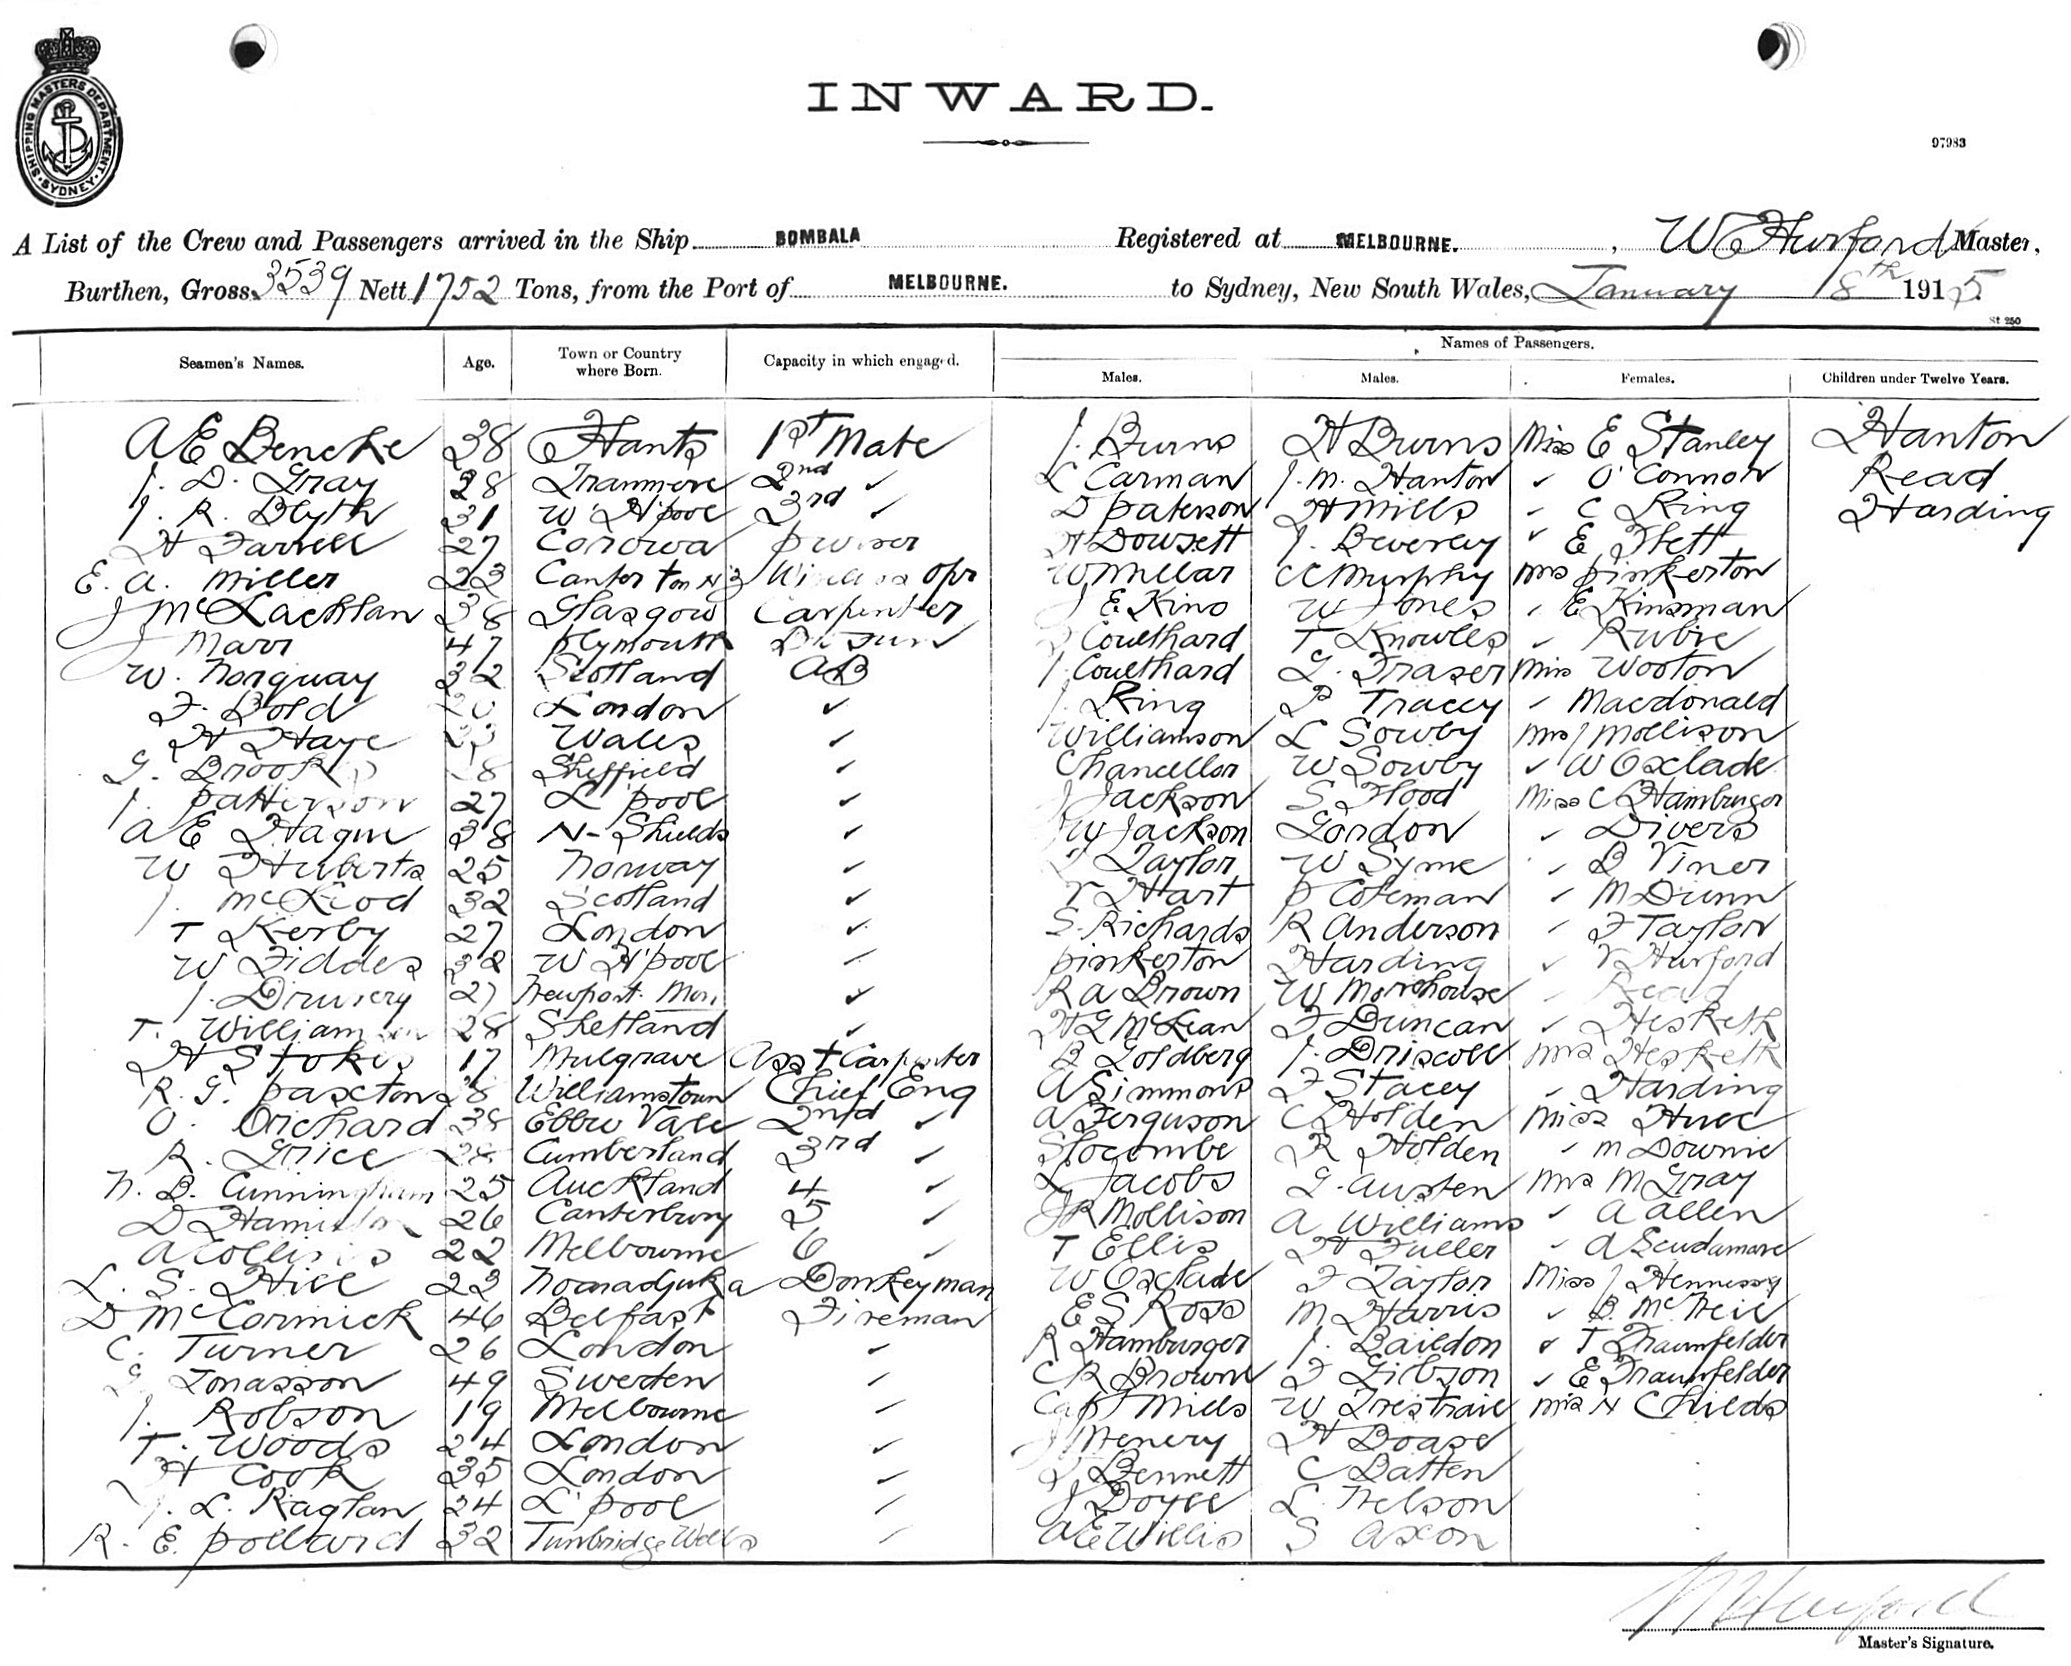 SHIPPING MASTERS DEPARTMENT · SYDNEY ·
INWARD.
97983
A List of the Crew and Passengers arrived in the Ship BOMBALA Registered at MELBOURNE. , W C Hurford Master,
Burthen, Gross 3539 Nett 1752 Tons, from the Port of MELBOURNE. to Sydney, New South Wales, January 8th 1915.
St 250
Names of Passengers.
Seamen's Names. Age. Town or Country where Born. Capacity in which engaged. Males. Males. Females. Children under Twelve Years.
A E Bencke 38 Hants 1st Mate J. Burns H Burns Miss E Stanley Hanton
J. D. Gray 28 Tranmere 2nd ✓ L Carman J. M. Hanton ✓ O'Connor Read
J. R. Blyth 31 W H'pool 3rd ✓ D Paterson H Mills ✓ C King Harding
H Farrell 27 Corowa Purser H Dowsett J. Beverley ✓ E Flett
E. A. Miller 23 Canterton NZ Wireless Opr W Millar C C Murphy Mrs Pinkerton
J McLachlan 38 Glasgow Carpenter J E. King W Jones ✓ E Kinsman
J Marr 47 Plymouth Coulthard T Knowles ✓ Rubie
W. Norquay 32 Scotland AB J Coulthard G. Fraser Miss Wooton
F. Bold London ✓ J. King P Tracey ✓ Macdonald
H Haye 33 Wales ✓ Williamson L Sowby Mrs J Mollison
G. Brooks Sheffield ✓ Chancellor W Sowby ✓ W Oxlade
J. Patterson 27 L'pool ✓ J Jackson S Flood Miss C Hamburger
A E Hagin 38 N- Shields ✓ W Jackson Gordon ✓ Divers
W Huberts 25 Norway ✓ Taylor W Syme ✓ B Viner
J. McLeod 32 Scotland ✓ V Hart P Coleman ✓ M Dunn
T Kerby 27 London ✓ S. Richards R Anderson ✓ F Taylor
W Fiddes 32 W H'pool ✓ Pinkerton Harding ✓ V Hurford
J. Druery 27 Newport. Mon. ✓ R A Brown W Morehouse ✓ Read
T. Williamson 28 Shetland ✓ H G McLean F Duncan ✓ Hesketh
H Stokes 17 Mulgrave Asst Carpenter B Goldberg J. Driscoll Mrs Hesketh
R. G. Paxton 28 Williamstown Chief Eng A Simmons F Stacey ✓ Harding
O. Orchard 38 Ebbw Vale 2nd ✓ A Ferguson C Holden Miss Huec
R. Grice 28 Cumberland 3rd ✓ Slocombe R Holden ✓ M Downie
N. B. Cunningham 25 Auckland 4 ✓ L Jacobs G. Austen Mrs M Gray
D Hamilton 26 Canterbury 5 ✓ J R Mollison A Williams ✓ A Allen
A Collins 22 Melbourne 6 ✓ T Ellis H Fuller ✓ A Scudamore
L. S. Hill 22 Donkeyman W Oxlade F Taylor Miss J Hennessy
D McCormick 46 Belfast Fireman E S Ross M Harris ✓ B. McNeil
C. Turner 26 London ✓ R Hamburger J. Baildon ✓ T Traumfelder
Jonasson 49 Sweden ✓ C R Brown F Gibson ✓ E Traumfelder
J. Robson 19 Melbourne ✓ Capt Mills W Trestrail Mrs N Childs
T. Woods 24 London ✓ J Menery H Boase
H Cook 35 London ✓ Bennett C Batten
L. Raglan 24 L'pool ✓ J Doyle L. Nelson
R. E. Pollard 32 Tunbridge Wells ✓ A E Willis S Axon
W Hurford
Master's Signature.